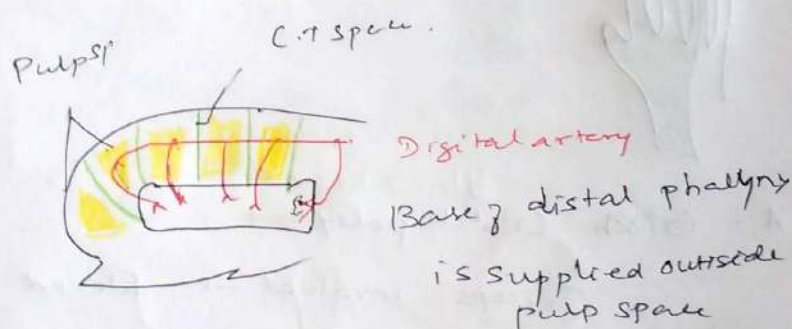 Pulp sp
C.T space.
Digital artery
Base of distal phalynx
is supplied outiside
pulp space